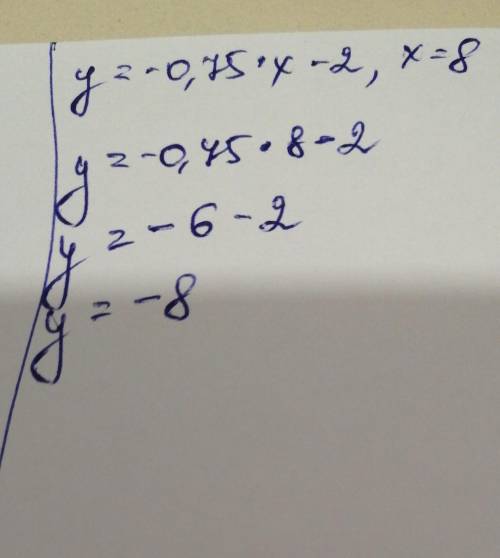 y = -0,75·x - 2, x = 8
y = -0,75·8 - 2
y = -6 - 2
y = -8